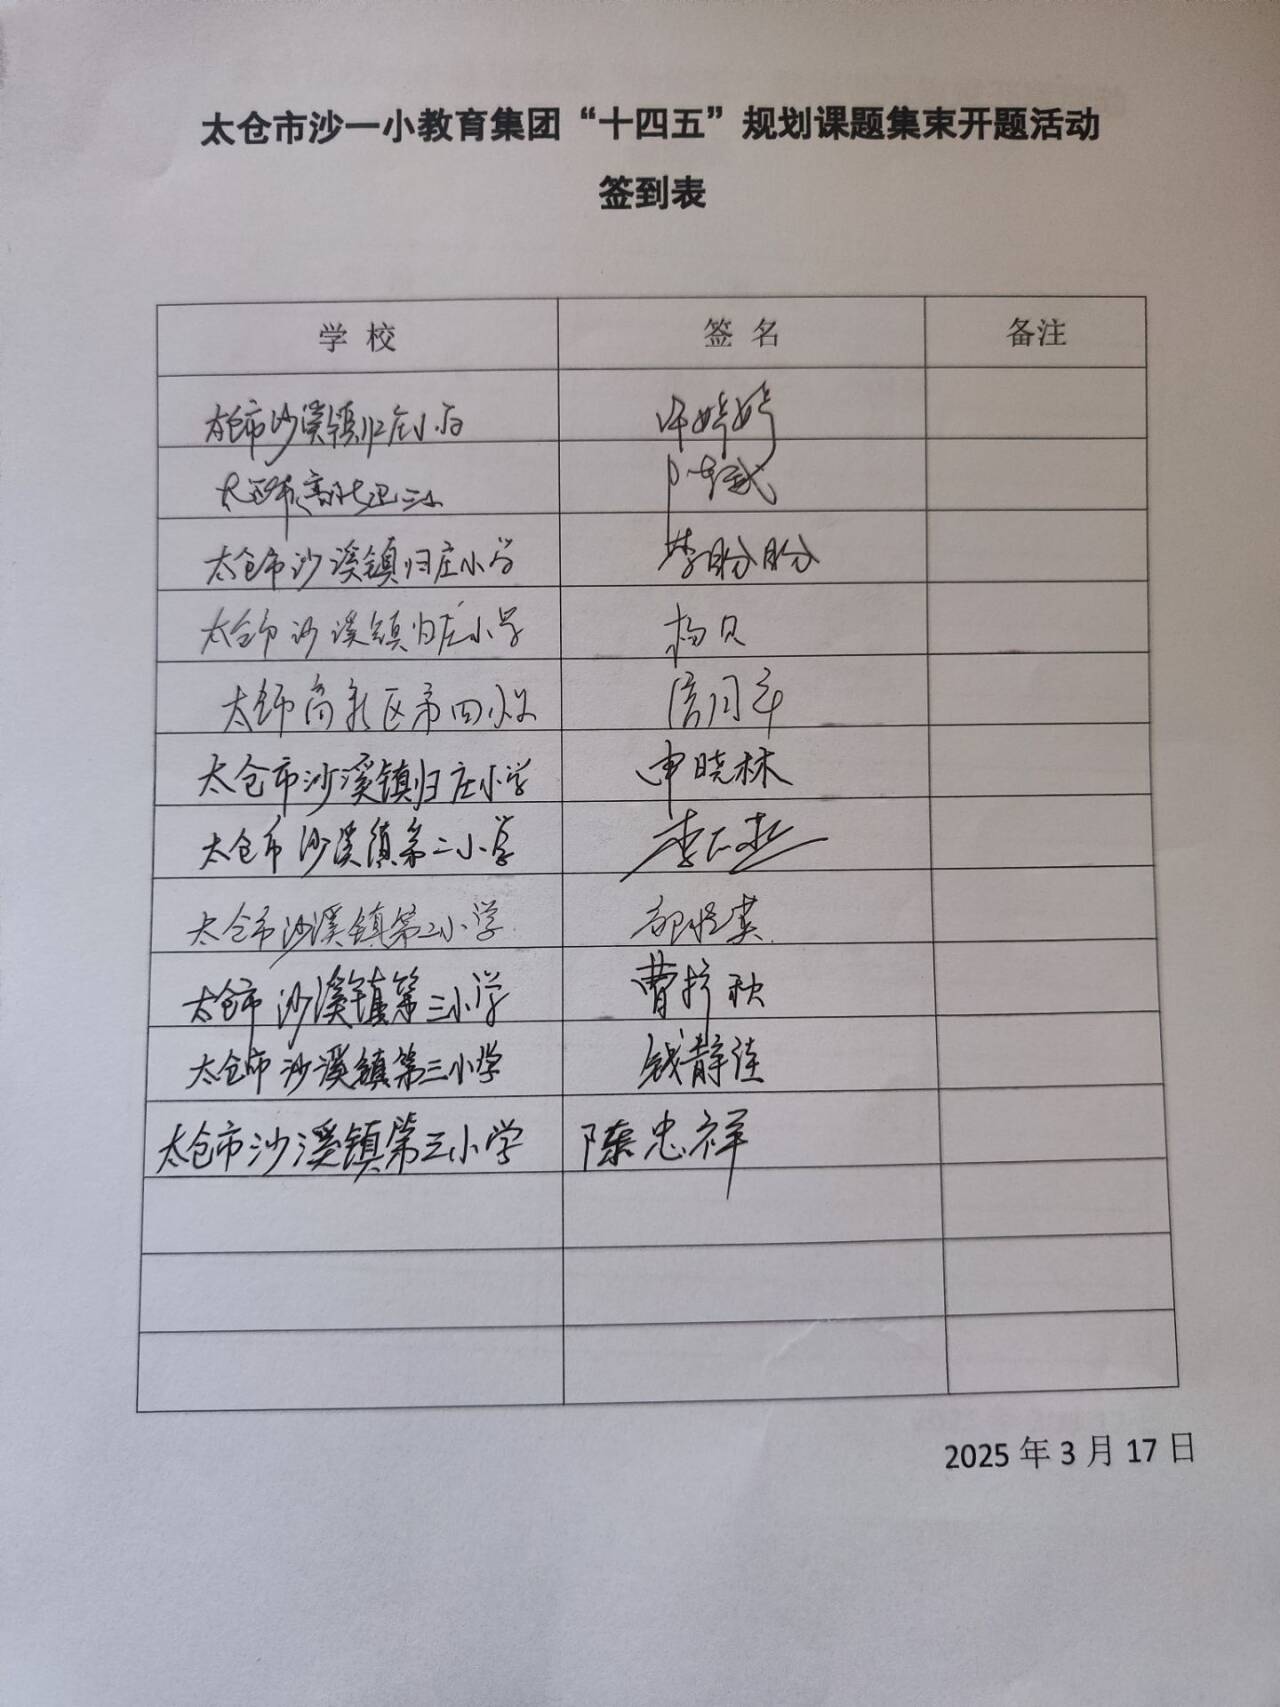 太仓市沙一小教育集团“十四五”规划课题集束开题活动
签到表
学 校 签 名 备注
太仓市沙溪镇归庄小学 许婷婷
太仓市高新区三小 陈斌
太仓市沙溪镇归庄小学 李盼盼
太仓市沙溪镇归庄小学 杨贝
太仓市高新区第四小学
太仓市沙溪镇归庄小学 申晓林
太仓市沙溪镇第二小学 李
太仓市沙溪镇第二小学 英
太仓市沙溪镇第三小学 曹 秋
太仓市沙溪镇第三小学 钱静洁
太仓市沙溪镇第三小学 陈忠祥
2025 年 3 月 17 日